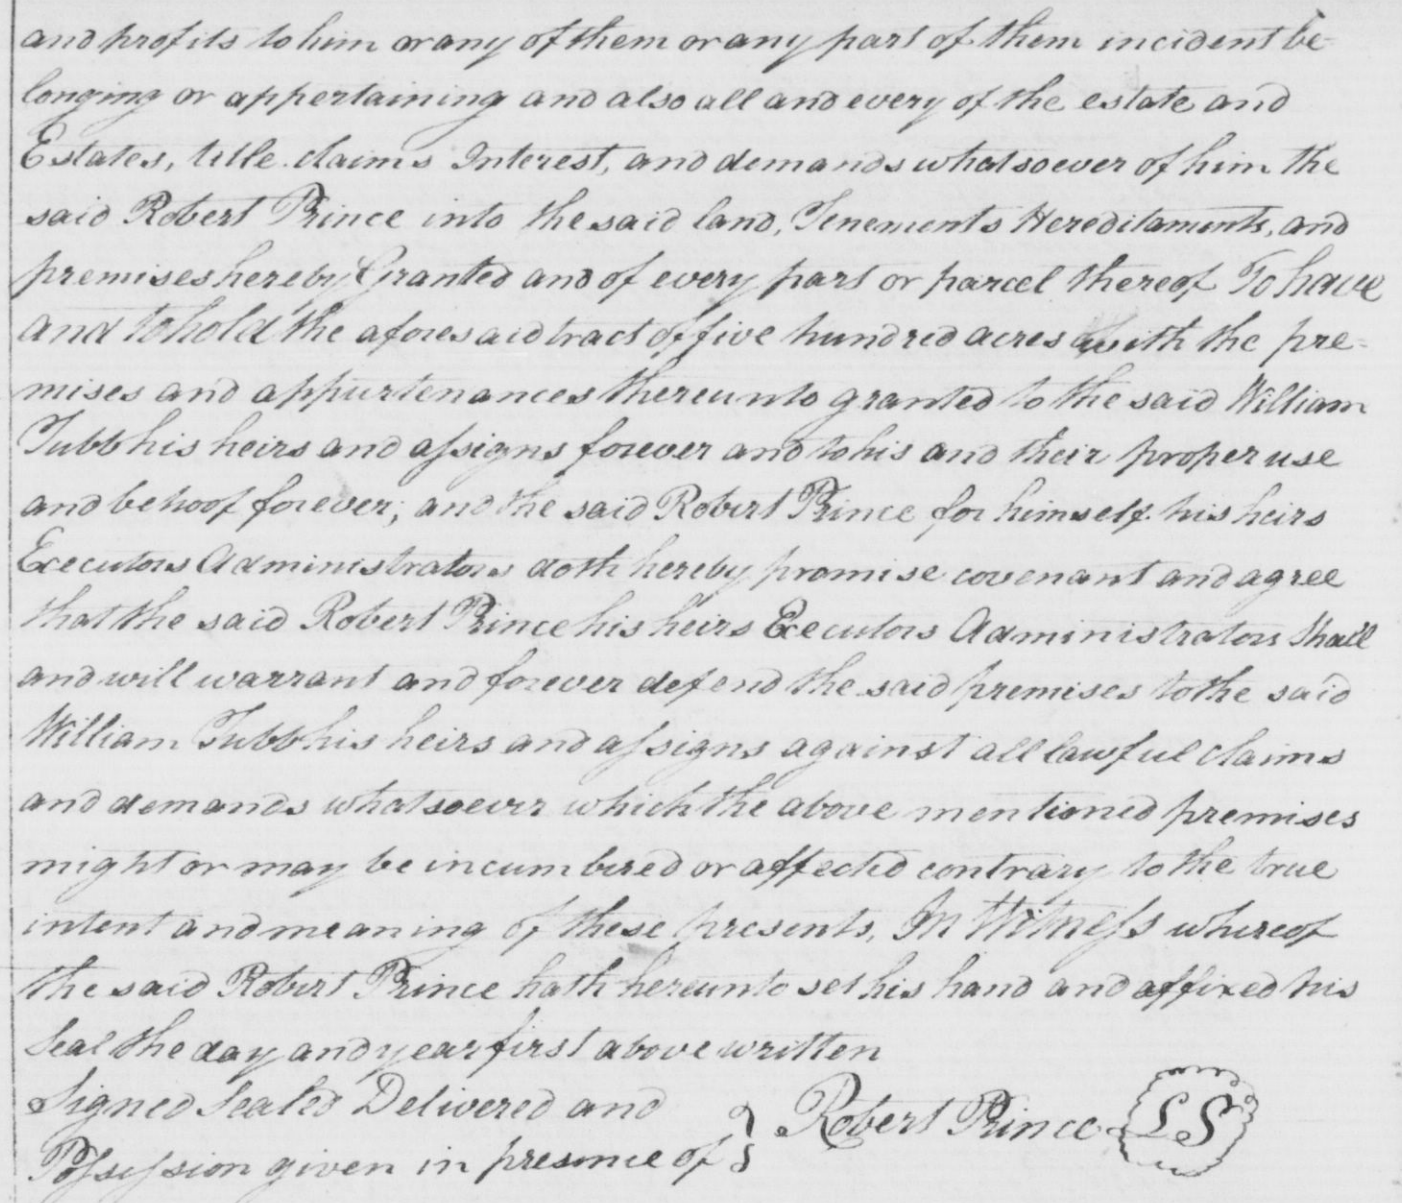 and profits to him or any of them or any part of them incident be-
longing or appertaining and also all and every of the estate and
Estates, title claims Interest, and demands whatsoever of him the
said Robert Prince into the said land, Tenements Hereditaments, and
premises hereby Granted and of every part or parcel thereof To have
and to hold the aforesaid tract of five hundred acres with the pre-
mises and appurtenances thereunto granted to the said William
Tubb his heirs and assigns forever and to his and their proper use
and behoof forever; and the said Robert Prince for himself his heirs
Executors Administrators doth hereby promise covenant and agree
that the said Robert Prince his heirs Executors Administrators Shall
and will warrant and forever defend the said premises to the said
William Tubb his heirs and assigns against all lawful claims
and demands whatsoever which the above mentioned premises
might or may be incumbered or affected contrary to the true
intent and meaning of these presents, In Witness whereof
the said Robert Prince hath hereunto set his hand and affixed his
Seal the day and year first above written
Signed Sealed Delivered and
Possession given in presence of } Robert Prince LS